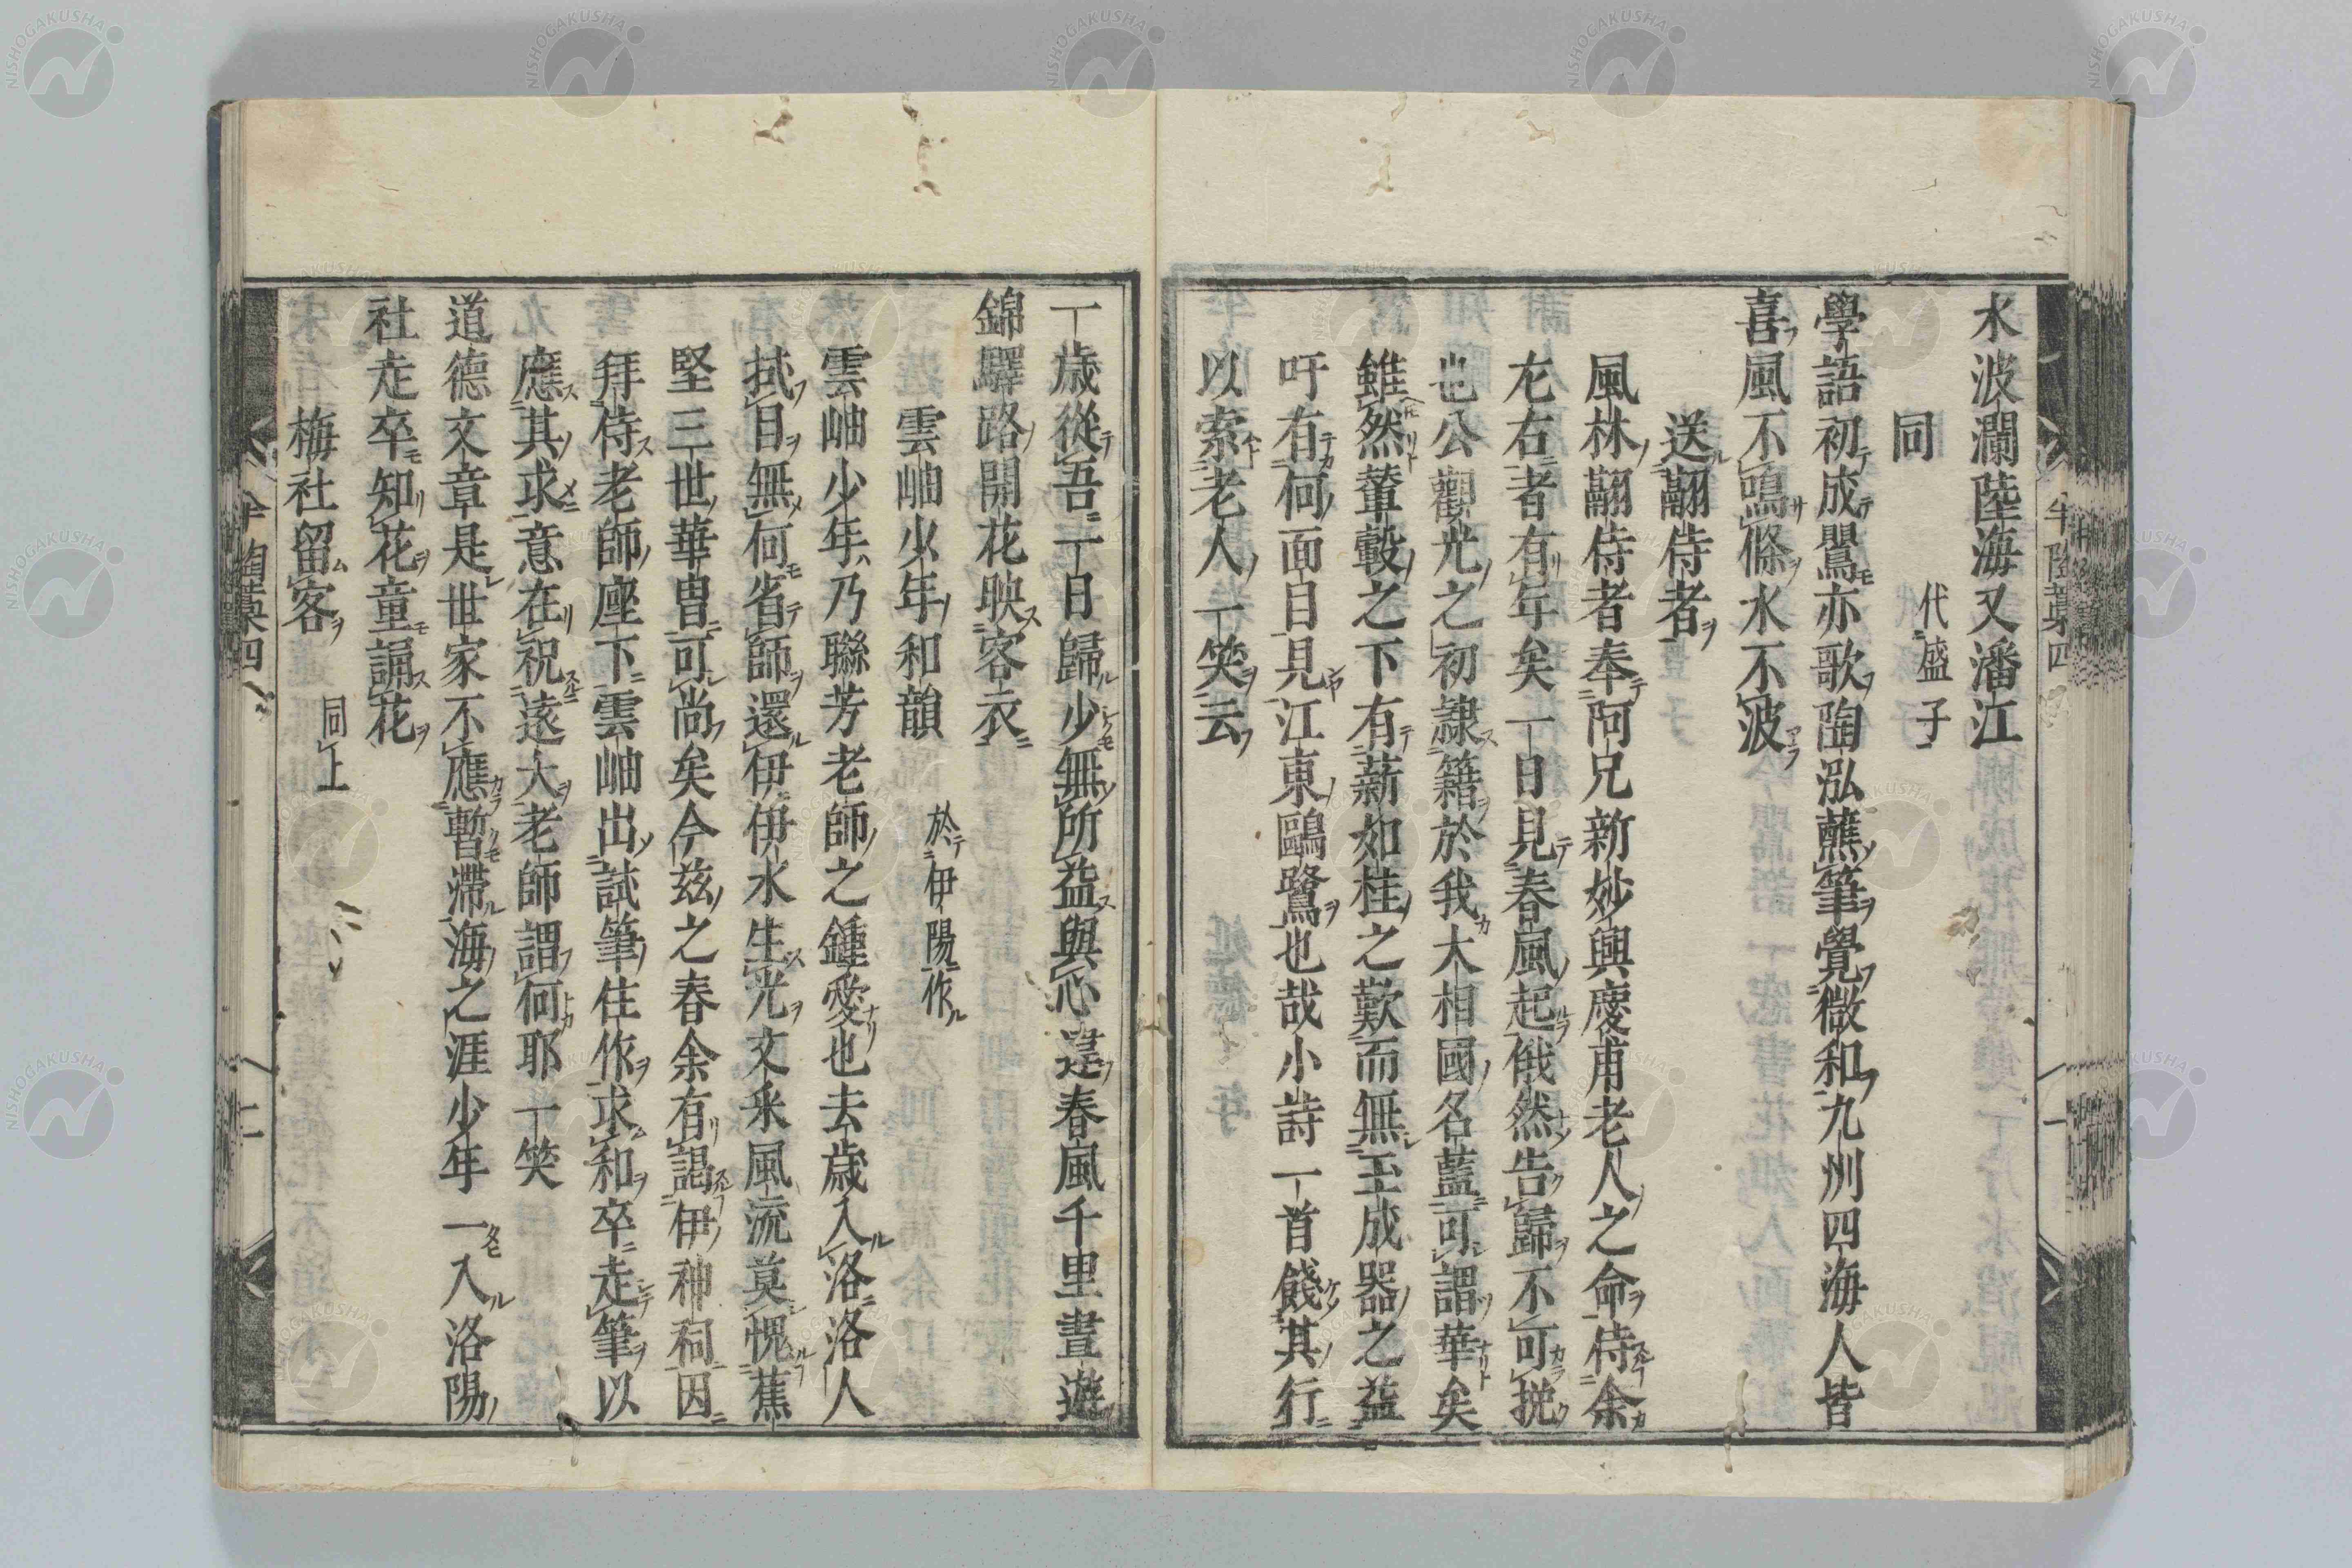 水波瀾陸海又潘江
同 代盛子
學語初成鸎亦歌陶泓蘸筆覺微和九州四海人皆
喜風不鳴條水不波
送翮侍者
風林翮侍者奉阿兄新妙興慶甫老人之命侍余
左右者有年矣一日見春風起俄然告歸不可挽
也公觀光之初隷籍於我大相國名藍可謂華矣
雖然輦轂之下有薪如桂之歎而無玉成器之益
吁有何面目見江東鷗鷺也哉小詩一首餞其行
以索老人一笑云
一歳從吾一日歸少無所益與心違春風千里晝遊
錦驛路開花映客衣
雲岫少年和韻 於伊陽作
雲岫少年乃聯芳老師之鍾愛也去歳入洛洛人
拭目無何省師還伊伊水生光文采風流莫愧蕉
堅三世華曽可尚矣今茲之春余有謁伊神祠因
拜侍老師座下雲岫出試筆佳作求和卒走筆以
應其求意在祝遠大老師謂何耶一笑
道德文章是世家不應暫滯海之涯少年一入洛陽
社走卒知花童誦花
梅社留客 同上
半陶藁四 一
半陶藁四 二